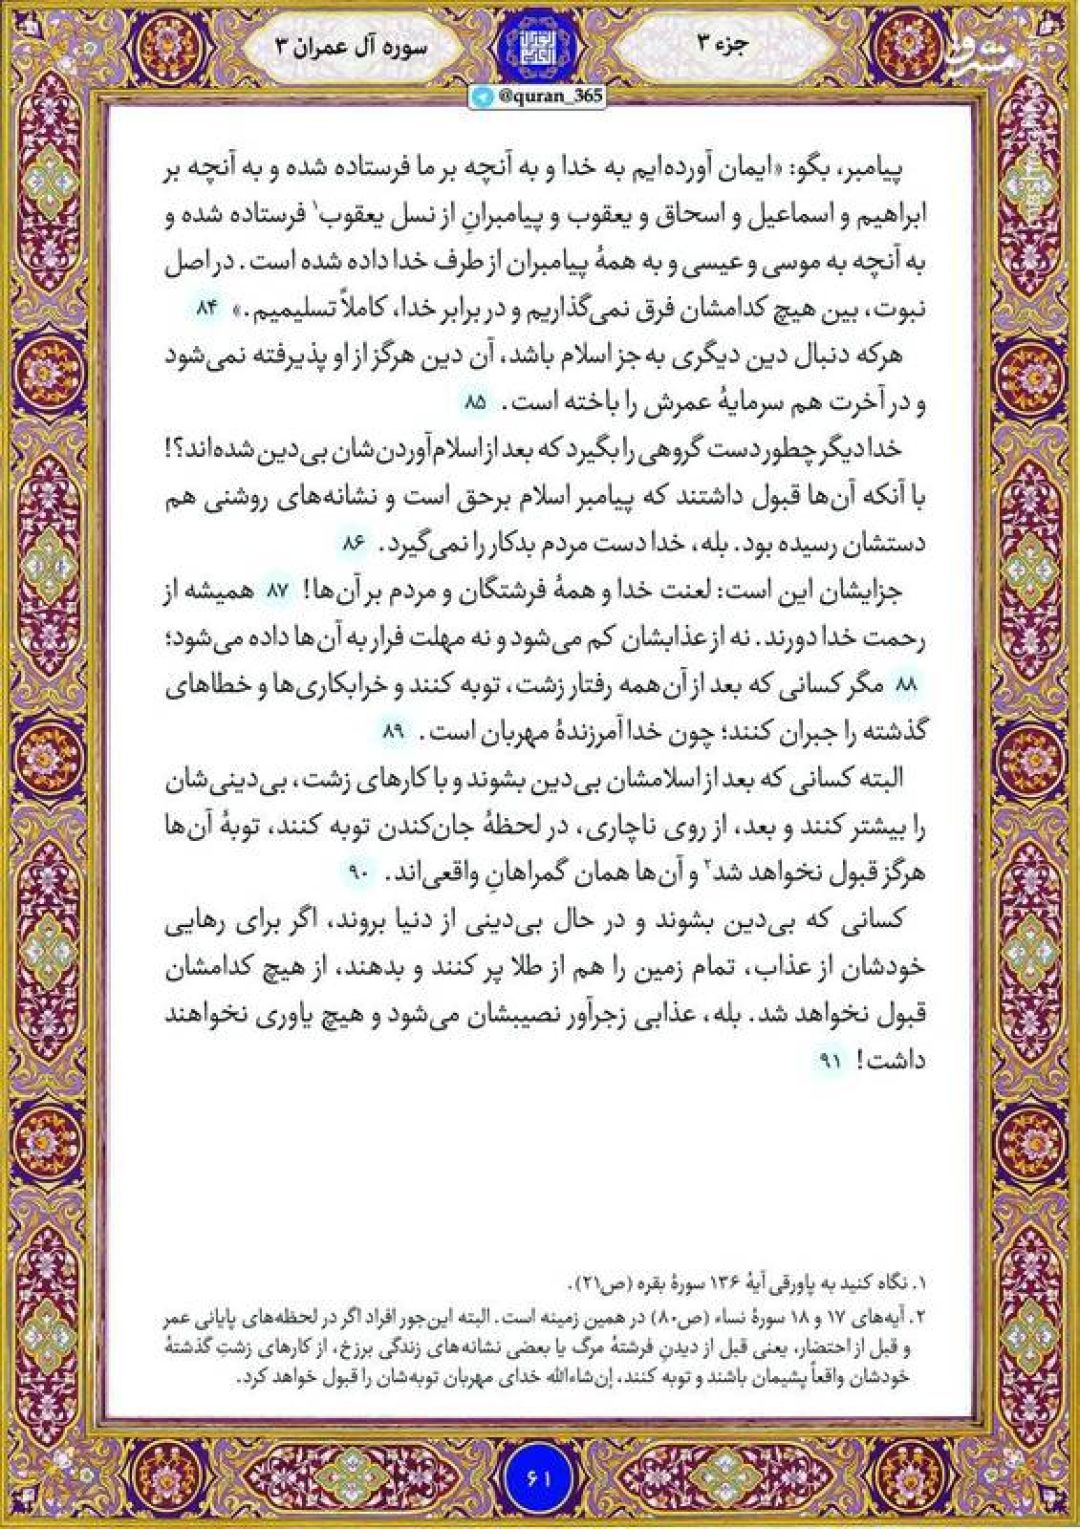 جزء ۳
سوره آل عمران ۳
@quran_365
مشرق
پیامبر، بگو: «ایمان آورده‌ایم به خدا و به آنچه بر ما فرستاده شده و به آنچه بر
ابراهیم و اسماعیل و اسحاق و یعقوب و پیامبرانِ از نسل یعقوب۱ فرستاده شده و
به آنچه به موسی و عیسی و به همهٔ پیامبران از طرف خدا داده شده است. در اصل
نبوت، بین هیچ کدامشان فرق نمی‌گذاریم و در برابر خدا، کاملاً تسلیمیم.» ۸۴
هرکه دنبال دین دیگری به‌جز اسلام باشد، آن دین هرگز از او پذیرفته نمی‌شود
و در آخرت هم سرمایهٔ عمرش را باخته است. ۸۵
خدا دیگر چطور دست گروهی را بگیرد که بعد از اسلام‌آوردن‌شان بی‌دین شده‌اند؟!
با آنکه آن‌ها قبول داشتند که پیامبر اسلام برحق است و نشانه‌های روشنی هم
دستشان رسیده بود. بله، خدا دست مردم بدکار را نمی‌گیرد. ۸۶
جزایشان این است: لعنت خدا و همهٔ فرشتگان و مردم بر آن‌ها! ۸۷ همیشه از
رحمت خدا دورند. نه از عذابشان کم می‌شود و نه مهلت فرار به آن‌ها داده می‌شود؛
۸۸ مگر کسانی که بعد از آن همه رفتار زشت، توبه کنند و خرابکاری‌ها و خطاهای
گذشته را جبران کنند؛ چون خدا آمرزندهٔ مهربان است. ۸۹
البته کسانی که بعد از اسلامشان بی‌دین بشوند و با کارهای زشت، بی‌دینی‌شان
را بیشتر کنند و بعد، از روی ناچاری، در لحظهٔ جان‌کندن توبه کنند، توبهٔ آن‌ها
هرگز قبول نخواهد شد۲ و آن‌ها همان گمراهانِ واقعی‌اند. ۹۰
کسانی که بی‌دین بشوند و در حال بی‌دینی از دنیا بروند، اگر برای رهایی
خودشان از عذاب، تمام زمین را هم از طلا پر کنند و بدهند، از هیچ کدامشان
قبول نخواهد شد. بله، عذابی زجرآور نصیبشان می‌شود و هیچ یاوری نخواهند
داشت! ۹۱
۱. نگاه کنید به پاورقی آیهٔ ۱۳۶ سورهٔ بقره (ص۲۱).
۲. آیه‌های ۱۷ و ۱۸ سورهٔ نساء (ص۸۰) در همین زمینه است. البته این‌جور افراد اگر در لحظه‌های پایانی عمر
و قبل از احتضار، یعنی قبل از دیدنِ فرشتهٔ مرگ یا بعضی نشانه‌های زندگی برزخ، از کارهای زشتِ گذشتهٔ
خودشان واقعاً پشیمان باشند و توبه کنند، إن‌شاءالله خدای مهربان توبه‌شان را قبول خواهد کرد.
۶۱